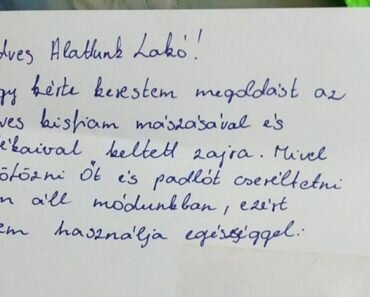 dves Alattunk Lakó!
gy kérte kerestem megoldást az
ves kisfiam mászásával és
ékaival keltett zajra. Mivel
ötözni Őt és padlót cseréltetni
m áll módunkban, ezért
em használja egészséggel: